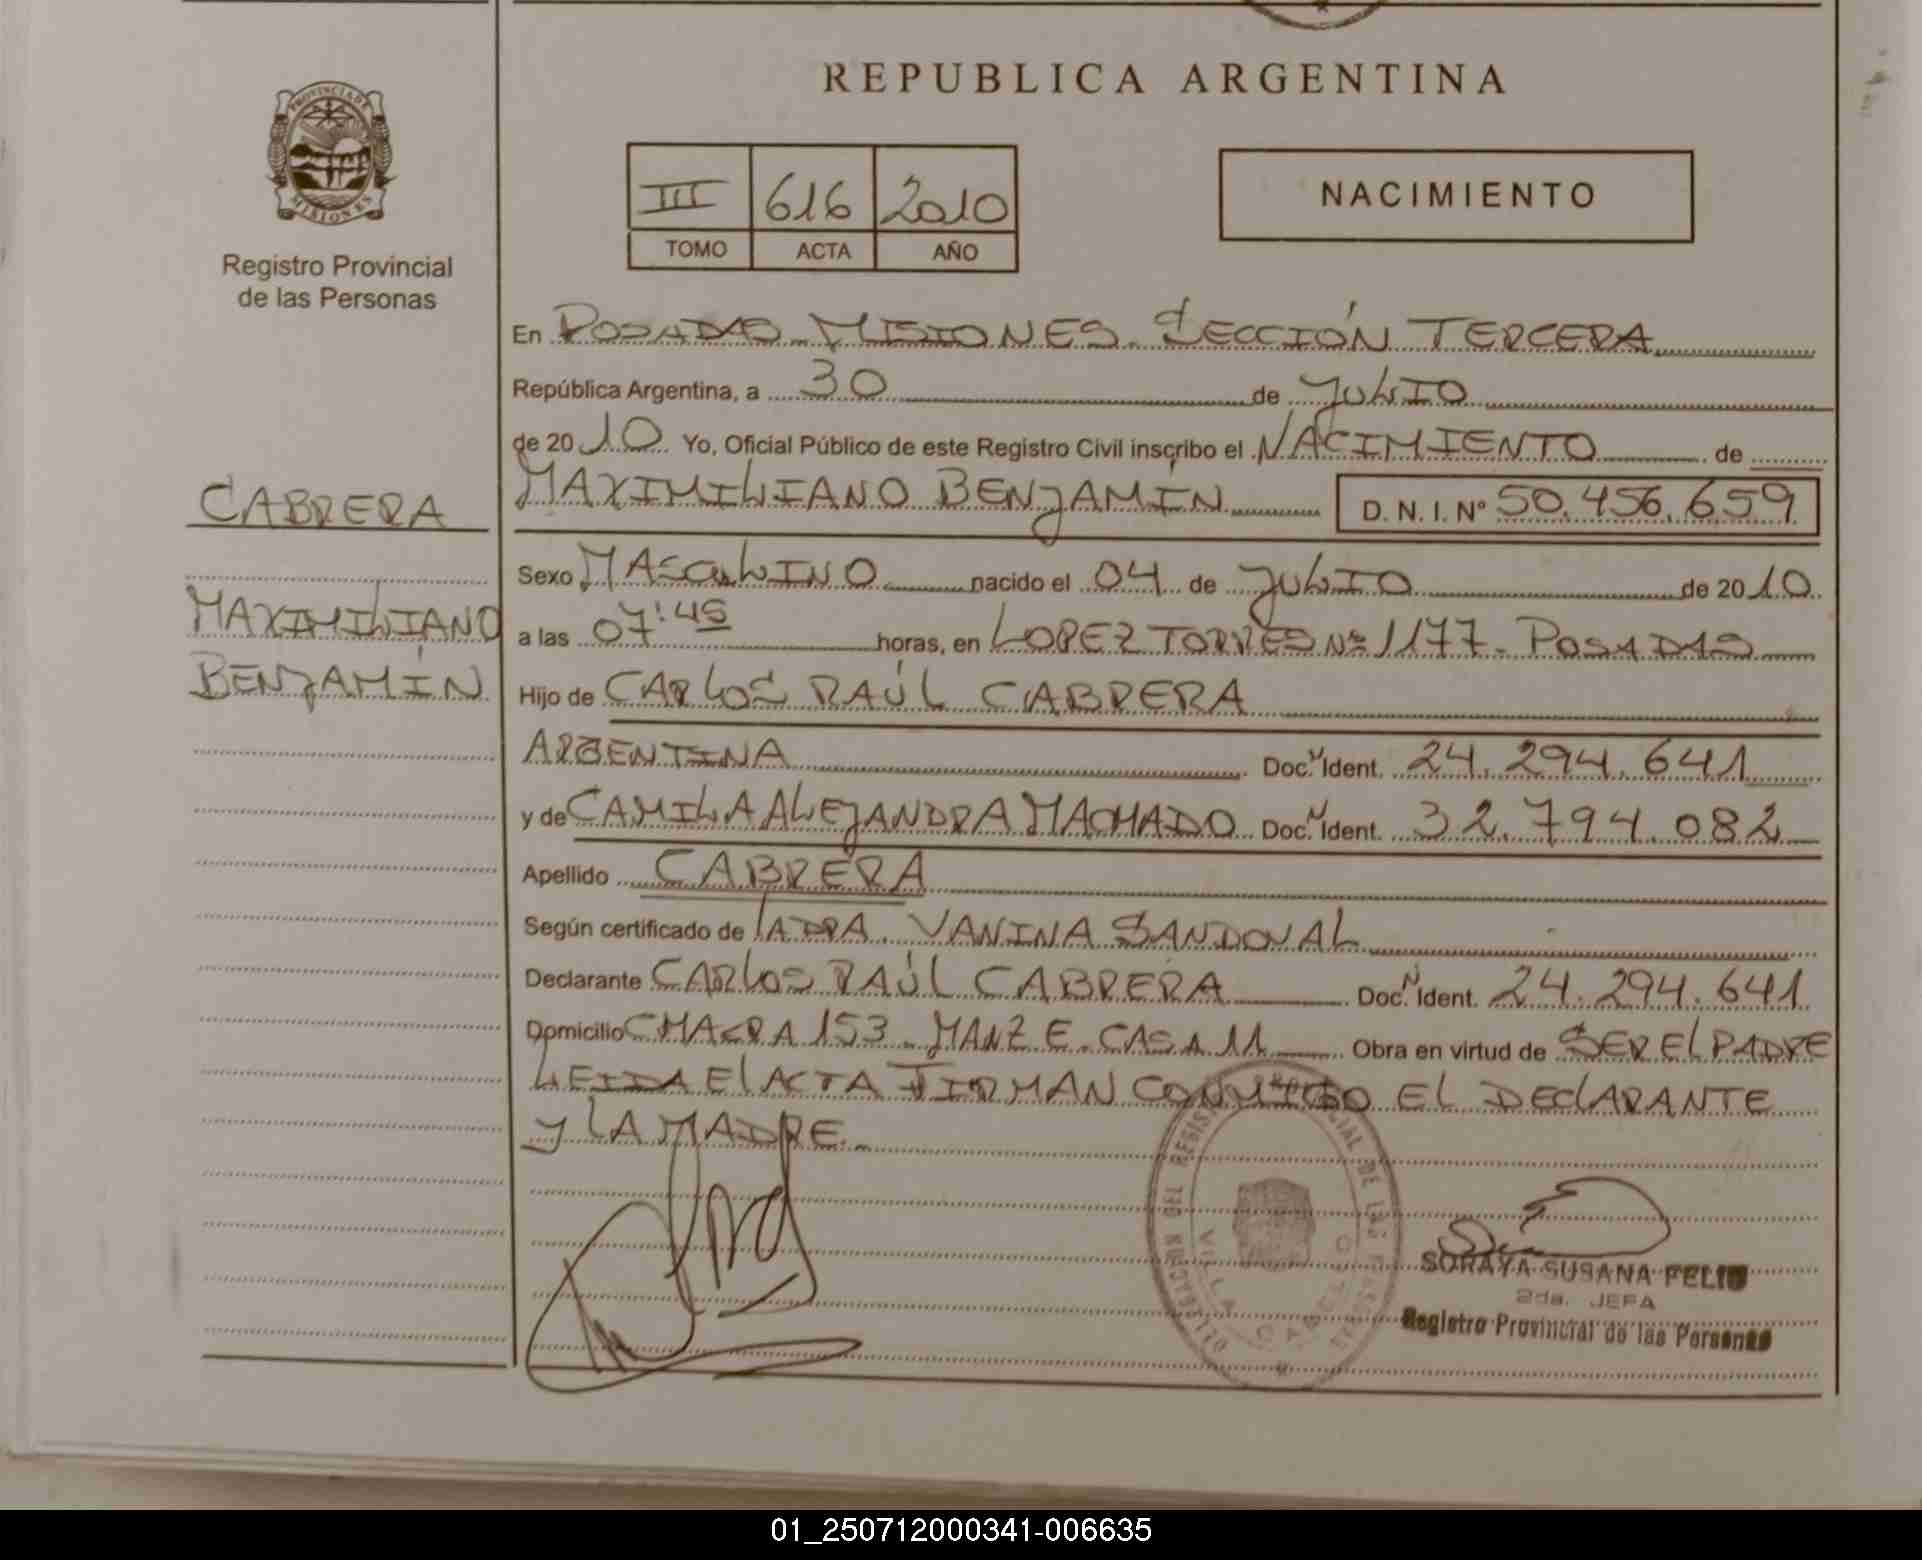 REPUBLICA ARGENTINA
PROVINCIA DE MISIONES
Registro Provincial
de las Personas
III 616 2010
TOMO ACTA AÑO
NACIMIENTO
En POSADAS - MISIONES. SECCIÓN TERCERA
República Argentina, a 30 de JULIO
de 2010 Yo, Oficial Público de este Registro Civil inscribo el NACIMIENTO de
MAXIMILIANO BENJAMÍN D. N. I. N° 50.456.659
CABRERA
MAXIMILIANO
BENJAMÍN
Sexo MASCULINO nacido el 04 de JULIO de 2010
a las 07:45 horas, en LOPEZ TORRES Nº 1177 - POSADAS
Hijo de CARLOS RAÚL CABRERA
ARGENTINA Doc. N Ident. 24.294.641
y de CAMILA ALEJANDRA MACHADO Doc. N Ident. 32.794.082
Apellido CABRERA
Según certificado de LA DRA. VANINA SANDOVAL
Declarante CARLOS RAÚL CABRERA Doc. N Ident. 24.294.641
Domicilio CHACRA 153 - MANZ E - CASA 11 Obra en virtud de SER EL PADRE
LEIDA El ACTA FIRMAN CONMIGO EL DEClARANTE
y LA MADRE.-
VILLA CABELLO
SORAYA SUSANA FELIU
2da. JEFA
Registro Provincial de las Personas
01_250712000341-006635